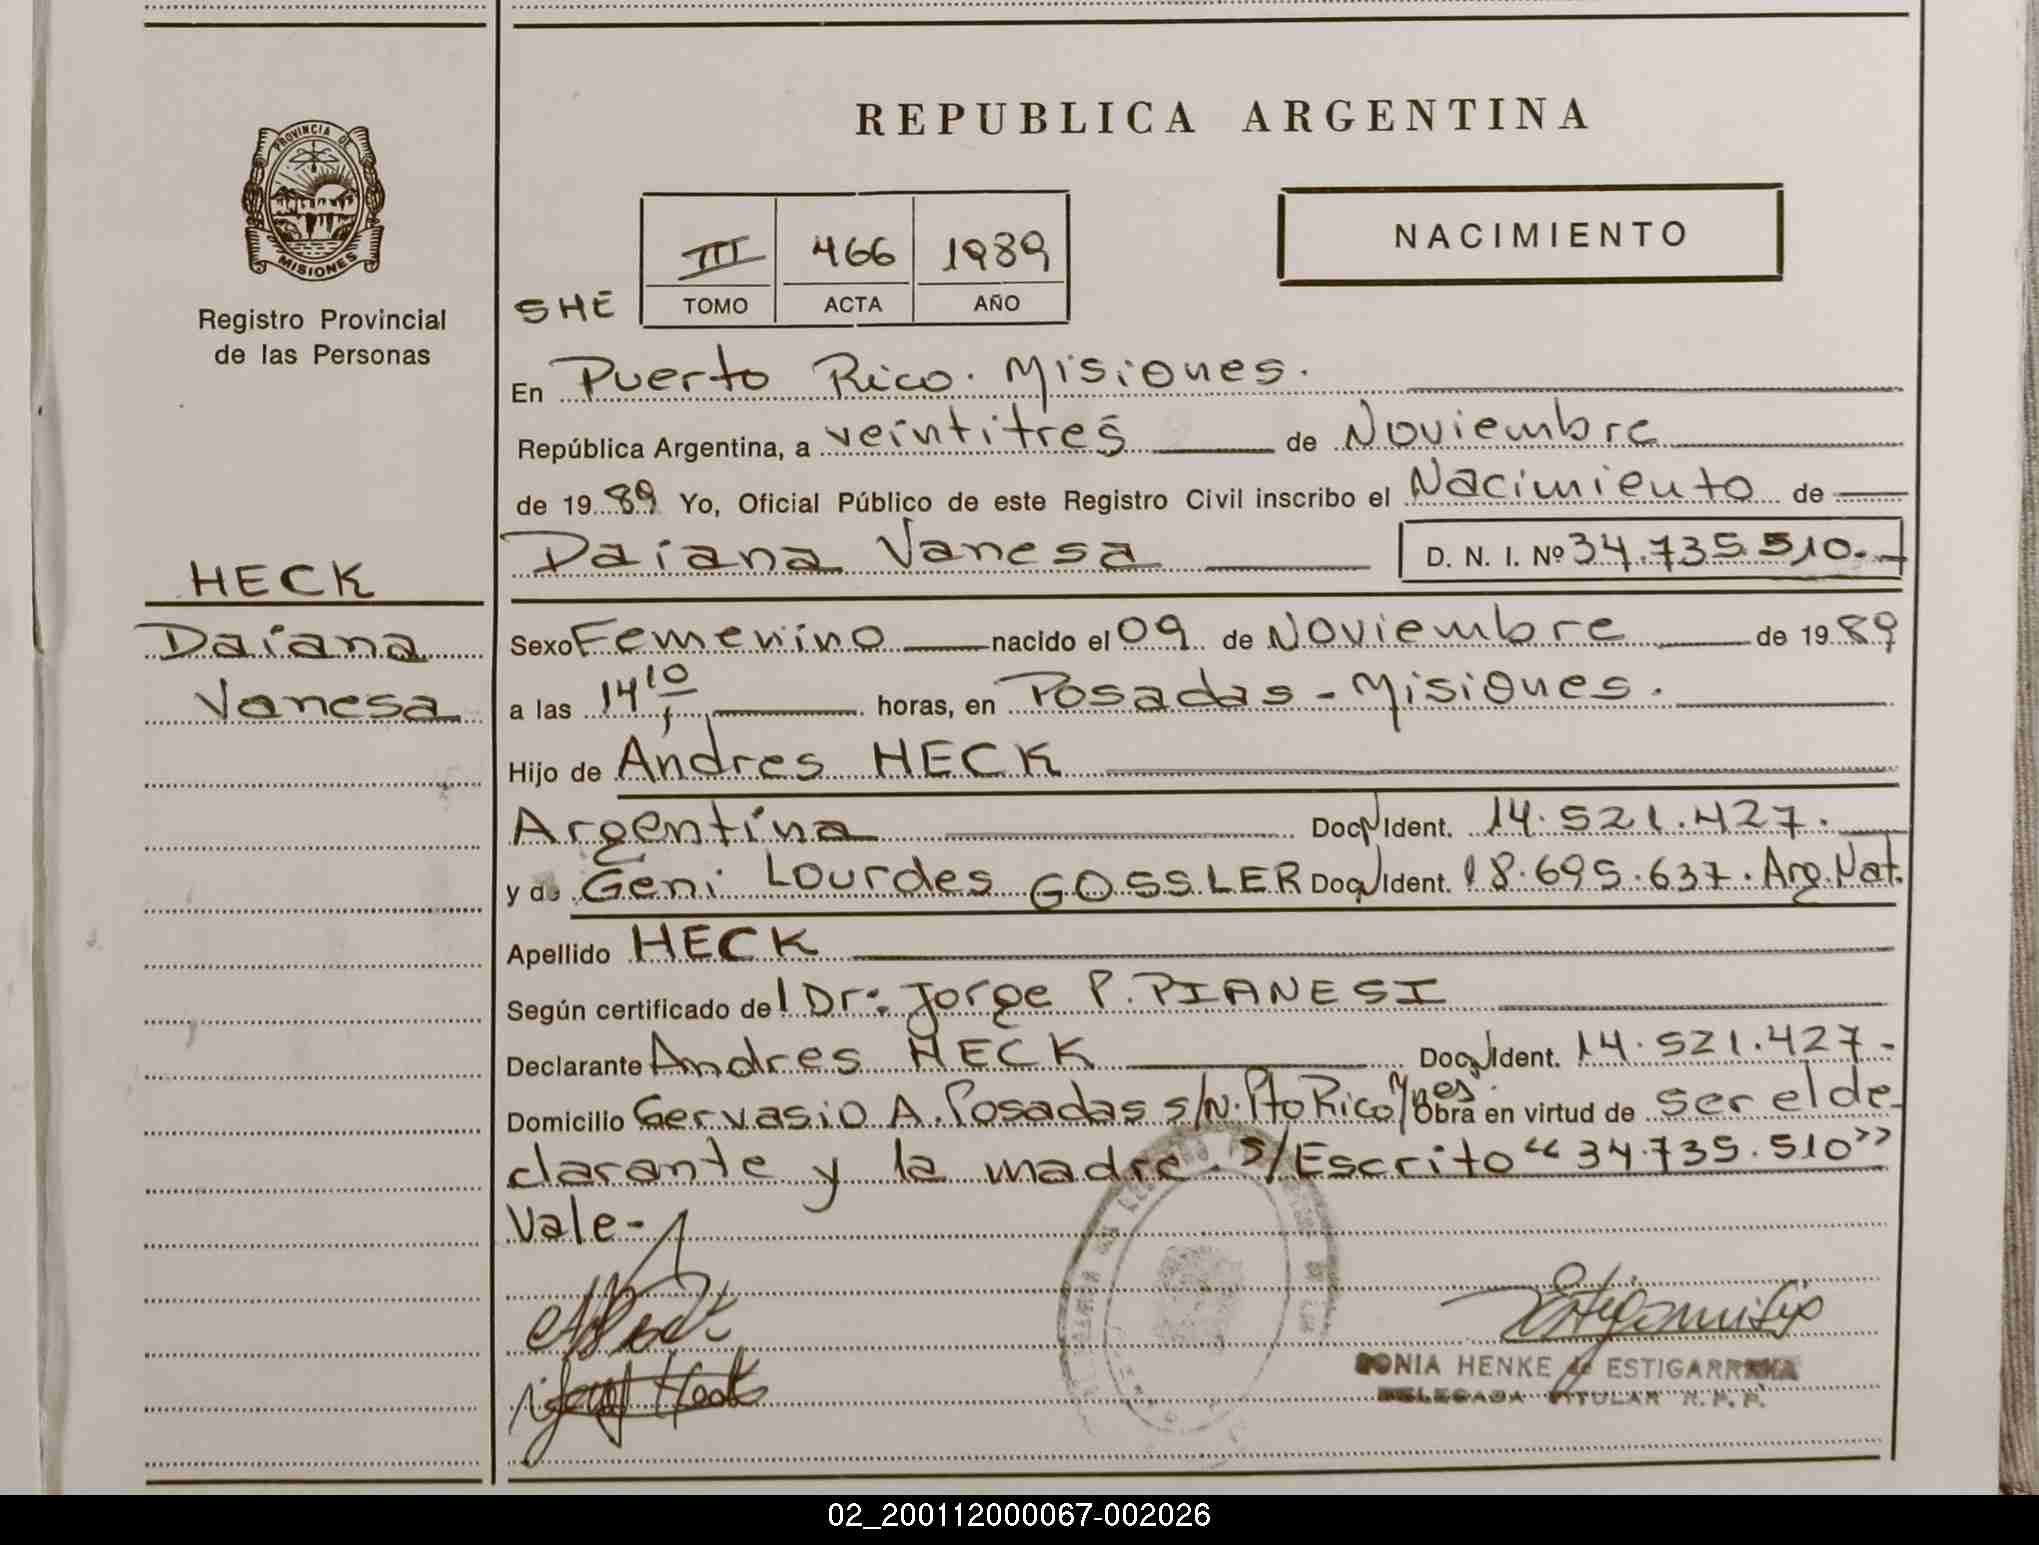 REPUBLICA ARGENTINA
PROVINCIA DE
MISIONES
Registro Provincial
de las Personas
NACIMIENTO
III 466 1989
TOMO ACTA AÑO
SHE
En Puerto Rico. Misiones.
República Argentina, a veintitres de Noviembre
de 1989 Yo, Oficial Público de este Registro Civil inscribo el Nacimiento de
Daiana Vanesa D. N. I. Nº 34.735.510.-
HECK
Daiana
Vanesa
Sexo Femenino nacido el 09 de Noviembre de 1989
a las 14 10 horas, en Posadas - Misiones.
Hijo de Andres HECK
Argentina Doc. Ident. 14.521.427.
y de Geni Lourdes GOSSLER Doc. Ident. 18.695.637. Arg. Nat.
Apellido HECK
Según certificado del Dr: Jorge P. PIANESI
Declarante Andres HECK Doc. Ident. 14.521.427-
Domicilio Gervasio A. Posadas s/N. Pto Rico Mnes. Obra en virtud de ser el de-
clarante y la madre. s/Escrito "34.735.510"
Vale-
SONIA HENKE de ESTIGARRIBIA
DELEGADA TITULAR R.P.P.
02_200112000067-002026